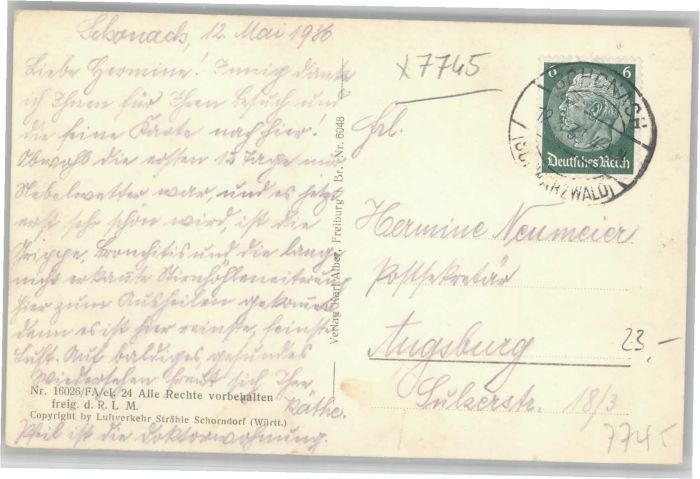 Schonach, 12. Mai 1936
Liebe Hermine! Innig danke
ich Ihnen für Ihren Besuch und
die feine Karte nach hier!
Obwohl die ersten 13 Tage nur
Nebelwetter war, und es jetzt
erst sehr schön wird, ist die
Grippe, Bronchitis und die lange
nicht erkannte Stirnhöhleneiterung
hier zum Ausheilen gekommen
denn es ist hier reinste, feinste
Luft. Auf baldiges, gesundes
Wiedersehen freut sich Ihre
Käthe.
Pfeil ist die Doktorwohnung.
Nr. 16026/FA/ek. 24 Alle Rechte vorbehalten
freig. d. R. L. M.
Copyright by Luftverkehr Strähle Schorndorf (Württ.)
Verlag Karl Alber, Freiburg i. Br. Nr. 6048
x7745
6 6
Deutsches Reich
SCHONACH
(SCHWARZWALD)
Frl.
Hermine Neumeier
Postsekretär
Augsburg
Sulzerstr. 18/3
23,-
7745